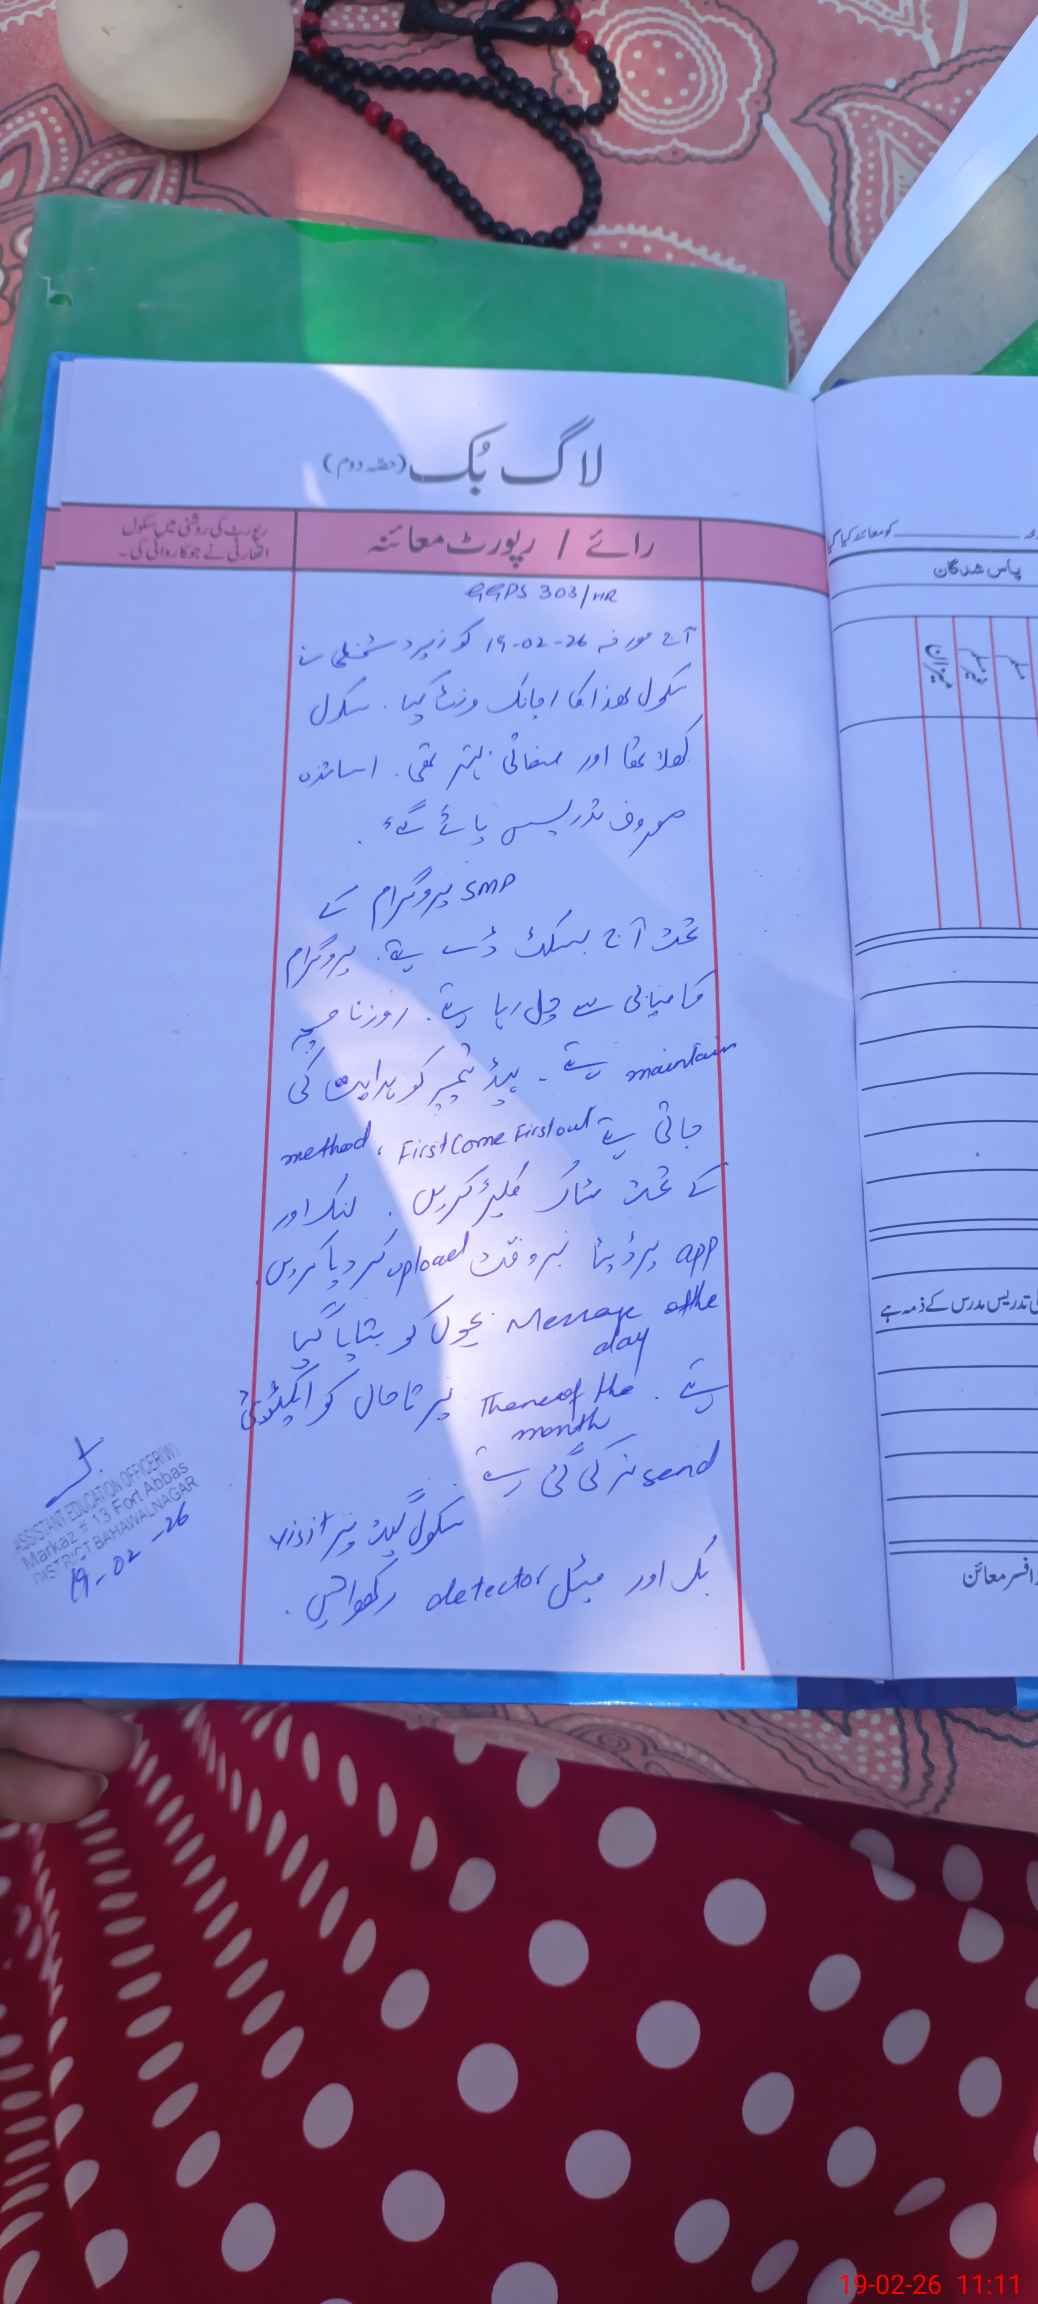 لاگ بُک (حصہ دوم)
رائے / رپورٹ معائنہ
رپورٹ کی روشنی میں سکول
اتھارٹی نے جو کاروائی کی۔
GGPS 303/HR
آج مورخہ 19-02-26 کو زیر دستخطی نے
سکول ھذا کا اچانک وزٹ کیا۔ سکول
کھلا تھا اور صفائی بہتر تھی۔ اساتذہ
مصروف تدریس پائے گئے۔
SMP پروگرام کے
تحت آج بسکٹ ڈے ہے۔ پروگرام
کامیابی سے چل رہا ہے۔ روزنامچہ
maintain ہے۔ ہیڈ ٹیچر کو ہدایت کی
جاتی ہے First Come First out، method
کے تحت سٹاک کلیئر کریں۔ لنک اور
app پر ڈیٹا بروقت upload کر دیا کریں۔
Message of the day بچوں کو بتایا گیا
ہے۔ Theme of the month پر تاحال کو ایکٹیوٹی
send نہ کی گئی ہے
سکول گیٹ پر visit
بک اور میٹل detector رکھوائیں۔
ASSISTANT EDUCATION OFFICER(W)
Markaz # 13 Fort Abbas
DISTRICT BAHAWALNAGAR
19-02-26
کو معائنہ کیا گیا
پاس شدگان
میزان
کی تدریس مدرس کے ذمہ ہے
افسر معائن
19-02-26 11:11